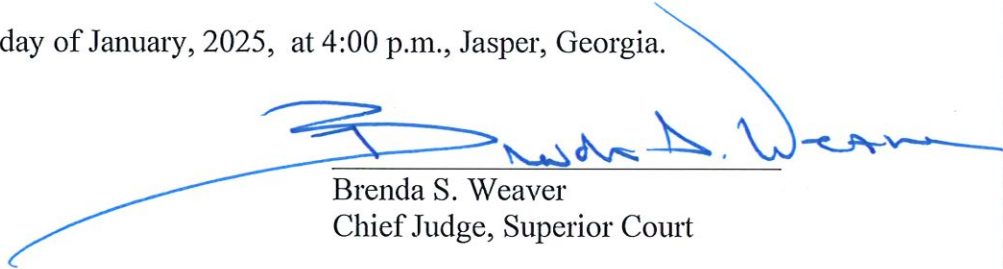 day of January, 2025, at 4:00 p.m., Jasper, Georgia.
Brenda S. Weaver
Brenda S. Weaver
Chief Judge, Superior Court